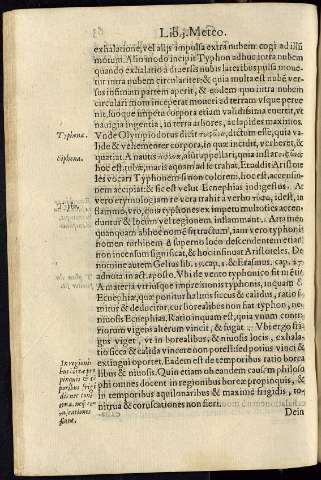 Lib. 3. Meteo.
exhalatione, vel alijs impulsa extra nubem cogi ad illū
motum. Alio modo incipit Typhon adhuc intra nubem
quando exhalatio à diversis nubis lateribus pulsa moue
tur intra nubem circulariter: & quia multa est nubē ver-
sus infimam partem aperit, & eodem quo intra nubem
circulari motu inceperat moueri ad terram vsque perve
nit, suoque impetu corpora etiam validissima euertit, vt
nauigia ingentia, in terra arbores, ac lapides maximos
Typhona.
Vnde Olympiodorus dicit dictum esse, quia va-
lide & vehementer corpora, in quæ incidit, verberet, &
siphona.
quatiat. A nautis aiunt appellari, quia instar
hoc est tubæ, maris aquam ad se trahat. Et addit Aristote
les vocari Typhonem si non colorem, hoc est, accensio-
nem accipiat: & sic est velut Ecnephias indigestus. At
vero etymologiam re vera trahit à verbo idest, in
flammo, vro, cum typhones ex impetu motus ties accen-
dantur & locum vel regionem inflamment. Attamen
quanquam ab hoc nomē sit tractum, iam vero typhonis
nomen turbinem à superno loco descendentem etiam
non incensum significat, & hoc insinuat Aristoteles. De
nomine autem Gelius lib. 19. cap. 1. & Erasmus. cap. 27
adnota in act. apostο. Vbi de vento typhonico fit mētio
A materia vtriusque impressionis typhonis, inquam &
Ecnephiæ, quæ ponitur halitus siccus & calidus, ratio su
mitur & deducitur, cur borealibus non fiat typhon, nec
niuosis Ecnephias. Ratio inquam est, quia vnum contra
riorum vigens alterum vincit, & fugat. Vbi ergo fri-
gus viget, vt in borealibus, & niuosis locis, exhala-
tio sicca & calida vincere non potest sed potius vinci &
In regioni-
extingui oportet. Eadem est de temporibus ratio borea
bus boreæ pro
libus & niuosis. Quin etiam ob eandem causam philoso
pinquis & tē
phi omnes docent in regionibus boreæ propinquis, &
poribus frigi
in temporibus aquilonaribus & maximè frigidis, to-
nitrua & coruscationes non fieri.
fiunt.
Dein